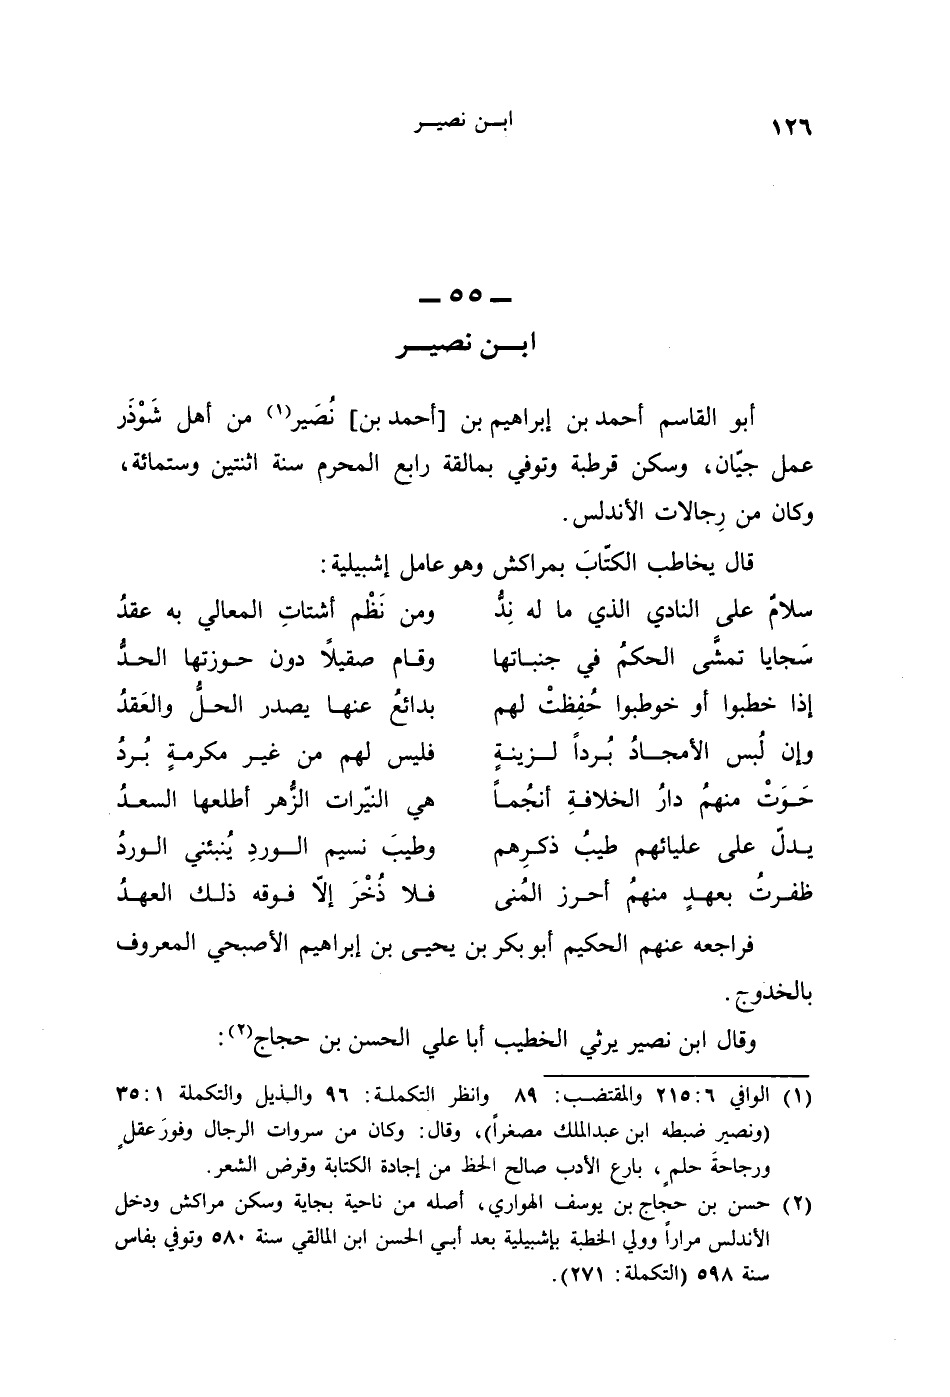 ١٢٦
ابـن نصيـر
ـ ٥٥ ـ
ابـن نصيـر
أبو القاسم أحمد بن إبراهيم بن [أحمد بن] نُصَير(١) من أهل شَوْذَر
عمل جيّان، وسكن قرطبة وتوفي بمالقة رابع المحرم سنة اثنتين وستمائة،
وكان من رِجالات الأندلس.
قال يخاطب الكتّابَ بمراكش وهو عامل إشبيلية:
سلامٌ على النادي الذي ما له نِدُّ ومن نَظْم أشتاتِ المعالي به عقدُ
سَجايا تمشَّى الحكمُ في جنباتها وقام صقيلاً دون حوزتها الحدُّ
إذا خطبوا أو خوطبوا حُفِظتْ لهم بدائعُ عنها يصدر الحلُّ والعَقدُ
وإن لُبس الأمجادُ بُرداً لزينةٍ فليس لهم من غير مكرمةٍ بُردُ
حَوَتْ منهمُ دارُ الخلافةِ أنجُماً هي النيّرات الزُّهر أطلعها السعدُ
يدلّ على عليائهم طيبُ ذكرِهم وطيبَ نسيم الوردِ يُنبئني الوردُ
ظفرتُ بعهدٍ منهمُ أحرز المُنى فلا ذُخْرَ إلّا فوقه ذلك العهدُ
فراجعه عنهم الحكيم أبو بكر بن يحيى بن إبراهيم الأصبحي المعروف
بالخدوج.
وقال ابن نصير يرثي الخطيب أبا علي الحسن بن حجاج(٢):
(١) الوافي ٦:٢١٥ والمقتضب: ٨٩ وانظر التكملة: ٩٦ والذيل والتكملة ١:٣٥
(ونصير ضبطه ابن عبدالملك مصغراً)، وقال: وكان من سروات الرجال وفورَ عقلٍ
ورجاحةَ حلمٍ، بارع الأدب صالح الحظ من إجادة الكتابة وقرض الشعر.
(٢) حسن بن حجاج بن يوسف الهواري، أصله من ناحية بجاية وسكن مراكش ودخل
الأندلس مراراً وولي الخطبة بإشبيلية بعد أبي الحسن ابن المالقي سنة ٥٨٠ وتوفي بفاس
سنة ٥٩٨ (التكملة: ٢٧١).